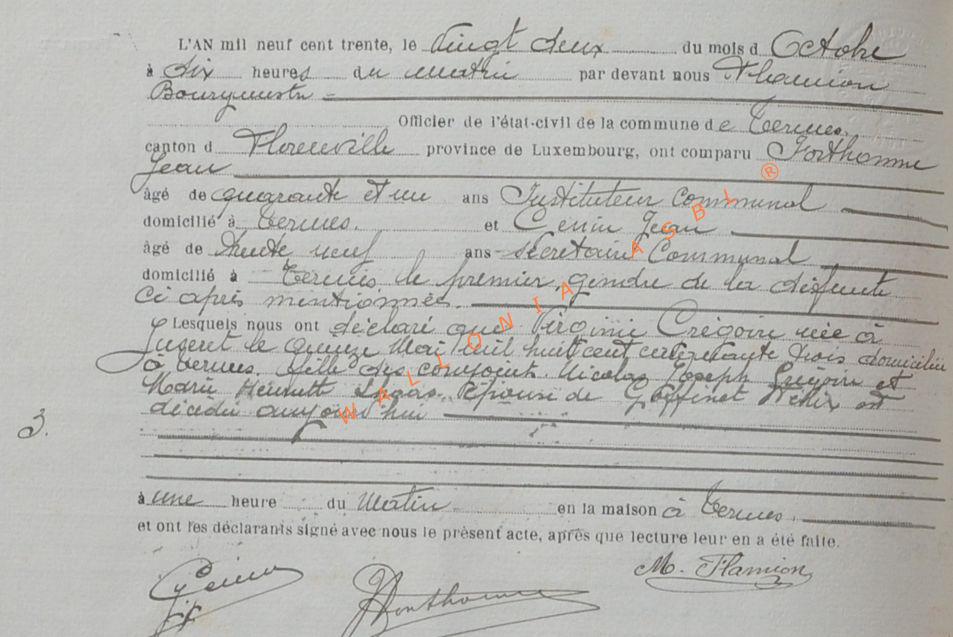 L'AN mil neuf cent trente, le Vingt deux du mois d Octobre
à dix heures du matin par devant nous Flamion
Bourgmestre
Officier de l'état-civil de la commune de Termes.
canton d Florenville province de Luxembourg, ont comparu Forthomme
Jean
âgé de quarante et un ans Instituteur Communal
domicilié à Termes. et Jean
âgé de trente neuf ans Secrétaire Communal
domicilié à Termes le premier, gendre de la défunte
ci après mentionnés.
Lesquels nous ont déclaré que Virginie Grégoire née à
Juseret le quinze Mai mil huit cent trois domiciliée
à Termes. fille des conjoints Nicolas Joseph Grégoire et
Marie épouse de Goffinet est
décédée aujourd'hui
3.
à une heure du Matin en la maison à Termes.
et ont les déclarants signé avec nous le présent acte, après que lecture leur en a été faite.
M. Flamion
Forthomme
WALLONIA ASBL ®